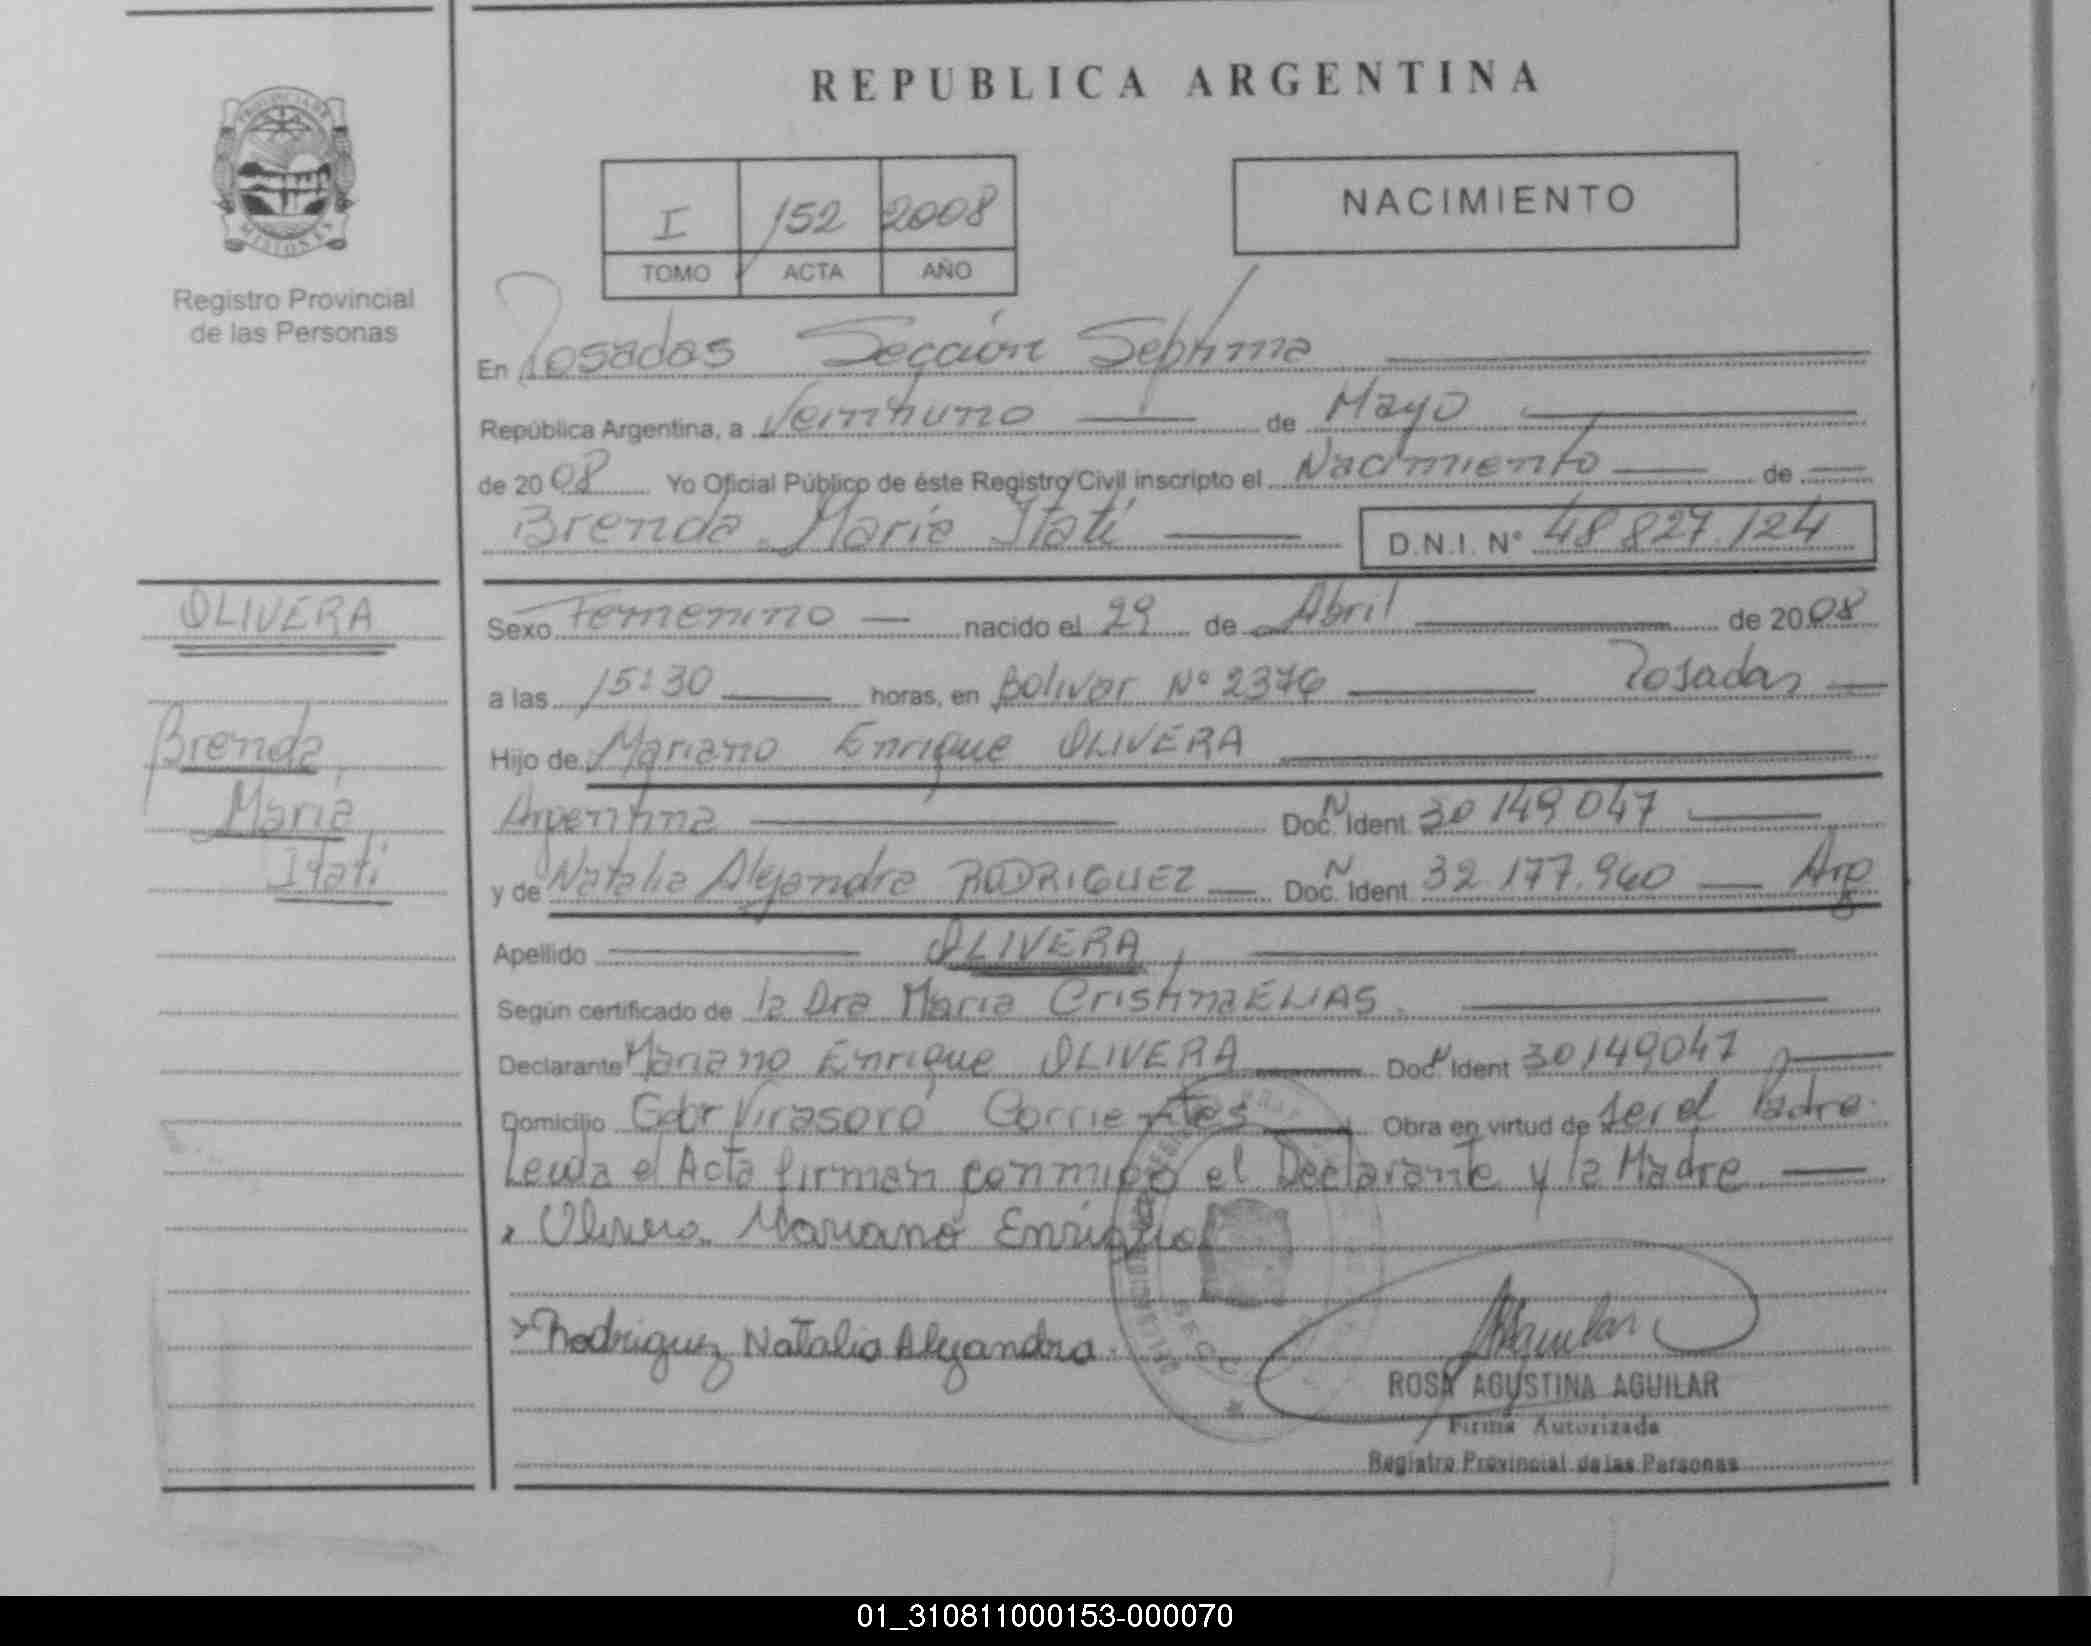 REPUBLICA ARGENTINA
PROVINCIA DE
MISIONES
Registro Provincial
de las Personas
I 152 2008
TOMO ACTA AÑO
NACIMIENTO
En Posadas Sección Septima
República Argentina, a Veintiuno de Mayo
de 2008 Yo Oficial Público de éste Registro Civil inscripto el Nacimiento de
Brenda Maria Itatí
D.N.I. N° 48 827.124
OLIVERA
Brenda
Maria
Itatí
Sexo Femenino nacido el 29 de Abril de 2008
a las 15:30 horas, en Bolivar N° 2376 Posadas
Hijo de Mariano Enrique OLIVERA
Argentina Doc. N Ident 30 149 047
y de Natalia Alejandra RODRIGUEZ Doc. N Ident 32.177.960 Arg
Apellido OLIVERA
Según certificado de la Dra Maria Cristina ELIAS.
Declarante Mariano Enrique OLIVERA Doc N Ident 30149047
Domicilio Gdor Virasoro Corrientes Obra en virtud de ser el Padre.
Leida el Acta firman conmigo el Declarante y la Madre
x Olivera Mariano Enrique
x Rodriguez Natalia Alejandra.
ROSA AGUSTINA AGUILAR
Firma Autorizada
Registro Provincial de las Personas
01_310811000153-000070